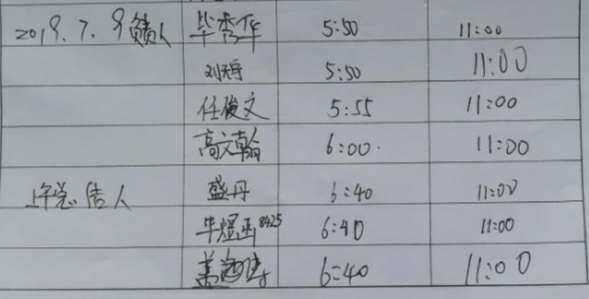 2019.7.9 赣人 毕秀华 5:50 11:00
5:50 11:00
任俊文 5:55 11:00
高文翰 6:00. 11:00
人 盛丹 6:40 11:00
牛煜函8425 6:40 11:00
6:40 11:00